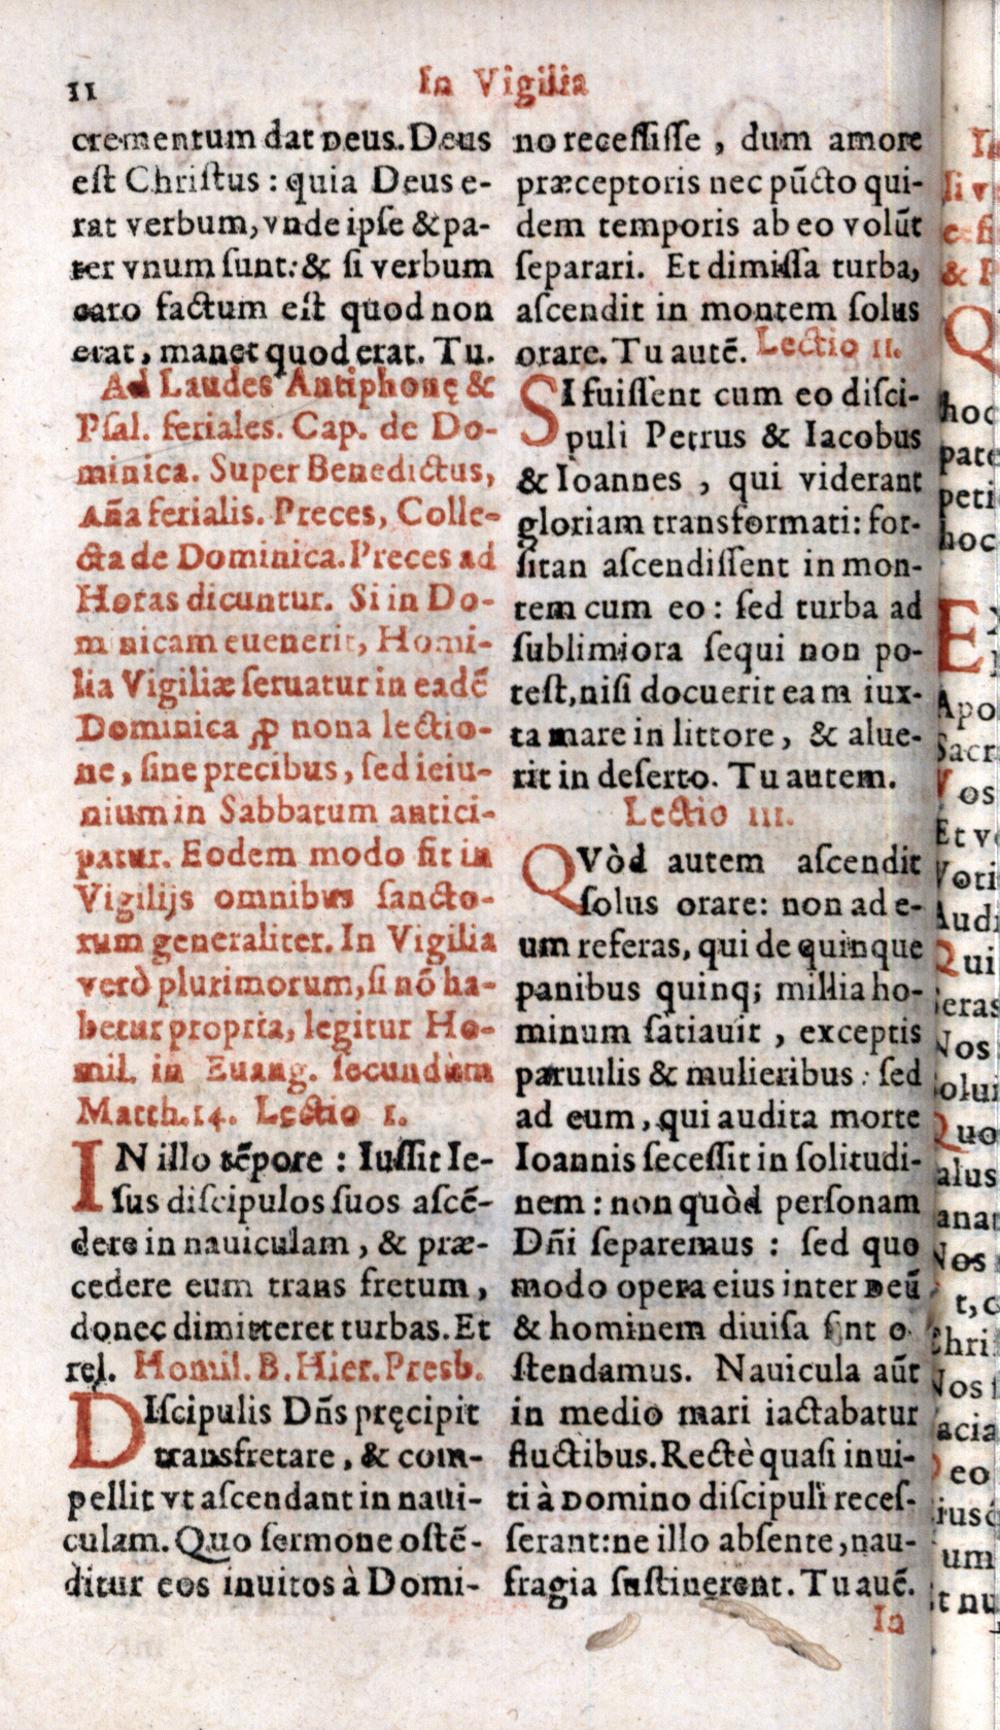 11
In Vigilia
crementum dat Deus. Deus
est Christus : quia Deus e-
rat verbum, vnde ipse & pa-
ter vnum sunt: & si verbum
caro factum est quod non
erat, manet quod erat. Tu.
Ad Laudes Antiphonę &
Psal. feriales. Cap. de Do-
minica. Super Benedictus,
Aña ferialis. Preces, Colle-
cta de Dominica. Preces ad
Horas dicuntur. Si in Do-
minicam euenerit, Homi-
lia Vigiliæ seruatur in eadē
Dominica ꝓ nona lectio-
ne, sine precibus, sed ieiu-
nium in Sabbatum antici-
patur. Eodem modo fit in
Vigilijs omnibus sancto-
rum generaliter. In Vigilia
verò plurimorum, si nō ha-
betur propria, legitur Ho-
mil. in Euang. secundùm
Matth. 14. Lectio 1.
IN illo tēpore : Iussit Ie-
sus discipulos suos ascē-
dere in nauiculam, & præ-
cedere eum trans fretum,
donec dimitteret turbas. Et
rel. Homil. B. Hier. Presb.
DIscipulis Dñs pręcipit
transfretare, & com-
pellit vt ascendant in naui-
culam. Quo sermone ostē-
ditur eos inuitos à Domi-
no recessisse, dum amore
præceptoris nec pūcto qui-
dem temporis ab eo volūt
separari. Et dimissa turba,
ascendit in montem solus
orare. Tu autē. Lectio 11.
SI fuissent cum eo disci-
puli Petrus & Iacobus
& Ioannes, qui viderant
gloriam transformati: for-
sitan ascendissent in mon-
tem cum eo : sed turba ad
sublimiora sequi non po-
test, nisi docuerit eam iux-
ta mare in littore, & alue-
rit in deserto. Tu autem.
Lectio 111.
QVòd autem ascendit
solus orare: non ad e-
um referas, qui de quinque
panibus quinq; millia ho-
minum satiauit, exceptis
paruulis & mulieribus : sed
ad eum, qui audita morte
Ioannis secessit in solitudi-
nem : non quòd personam
Dñi separemus : sed quo
modo opera eius inter Deū
& hominem diuisa sint o
stendamus. Nauicula aūt
in medio mari iactabatur
fluctibus. Rectè quasi inui-
ti à Domino discipuli reces-
serant: ne illo absente, nau-
fragia sustinerent. Tu auē.
In